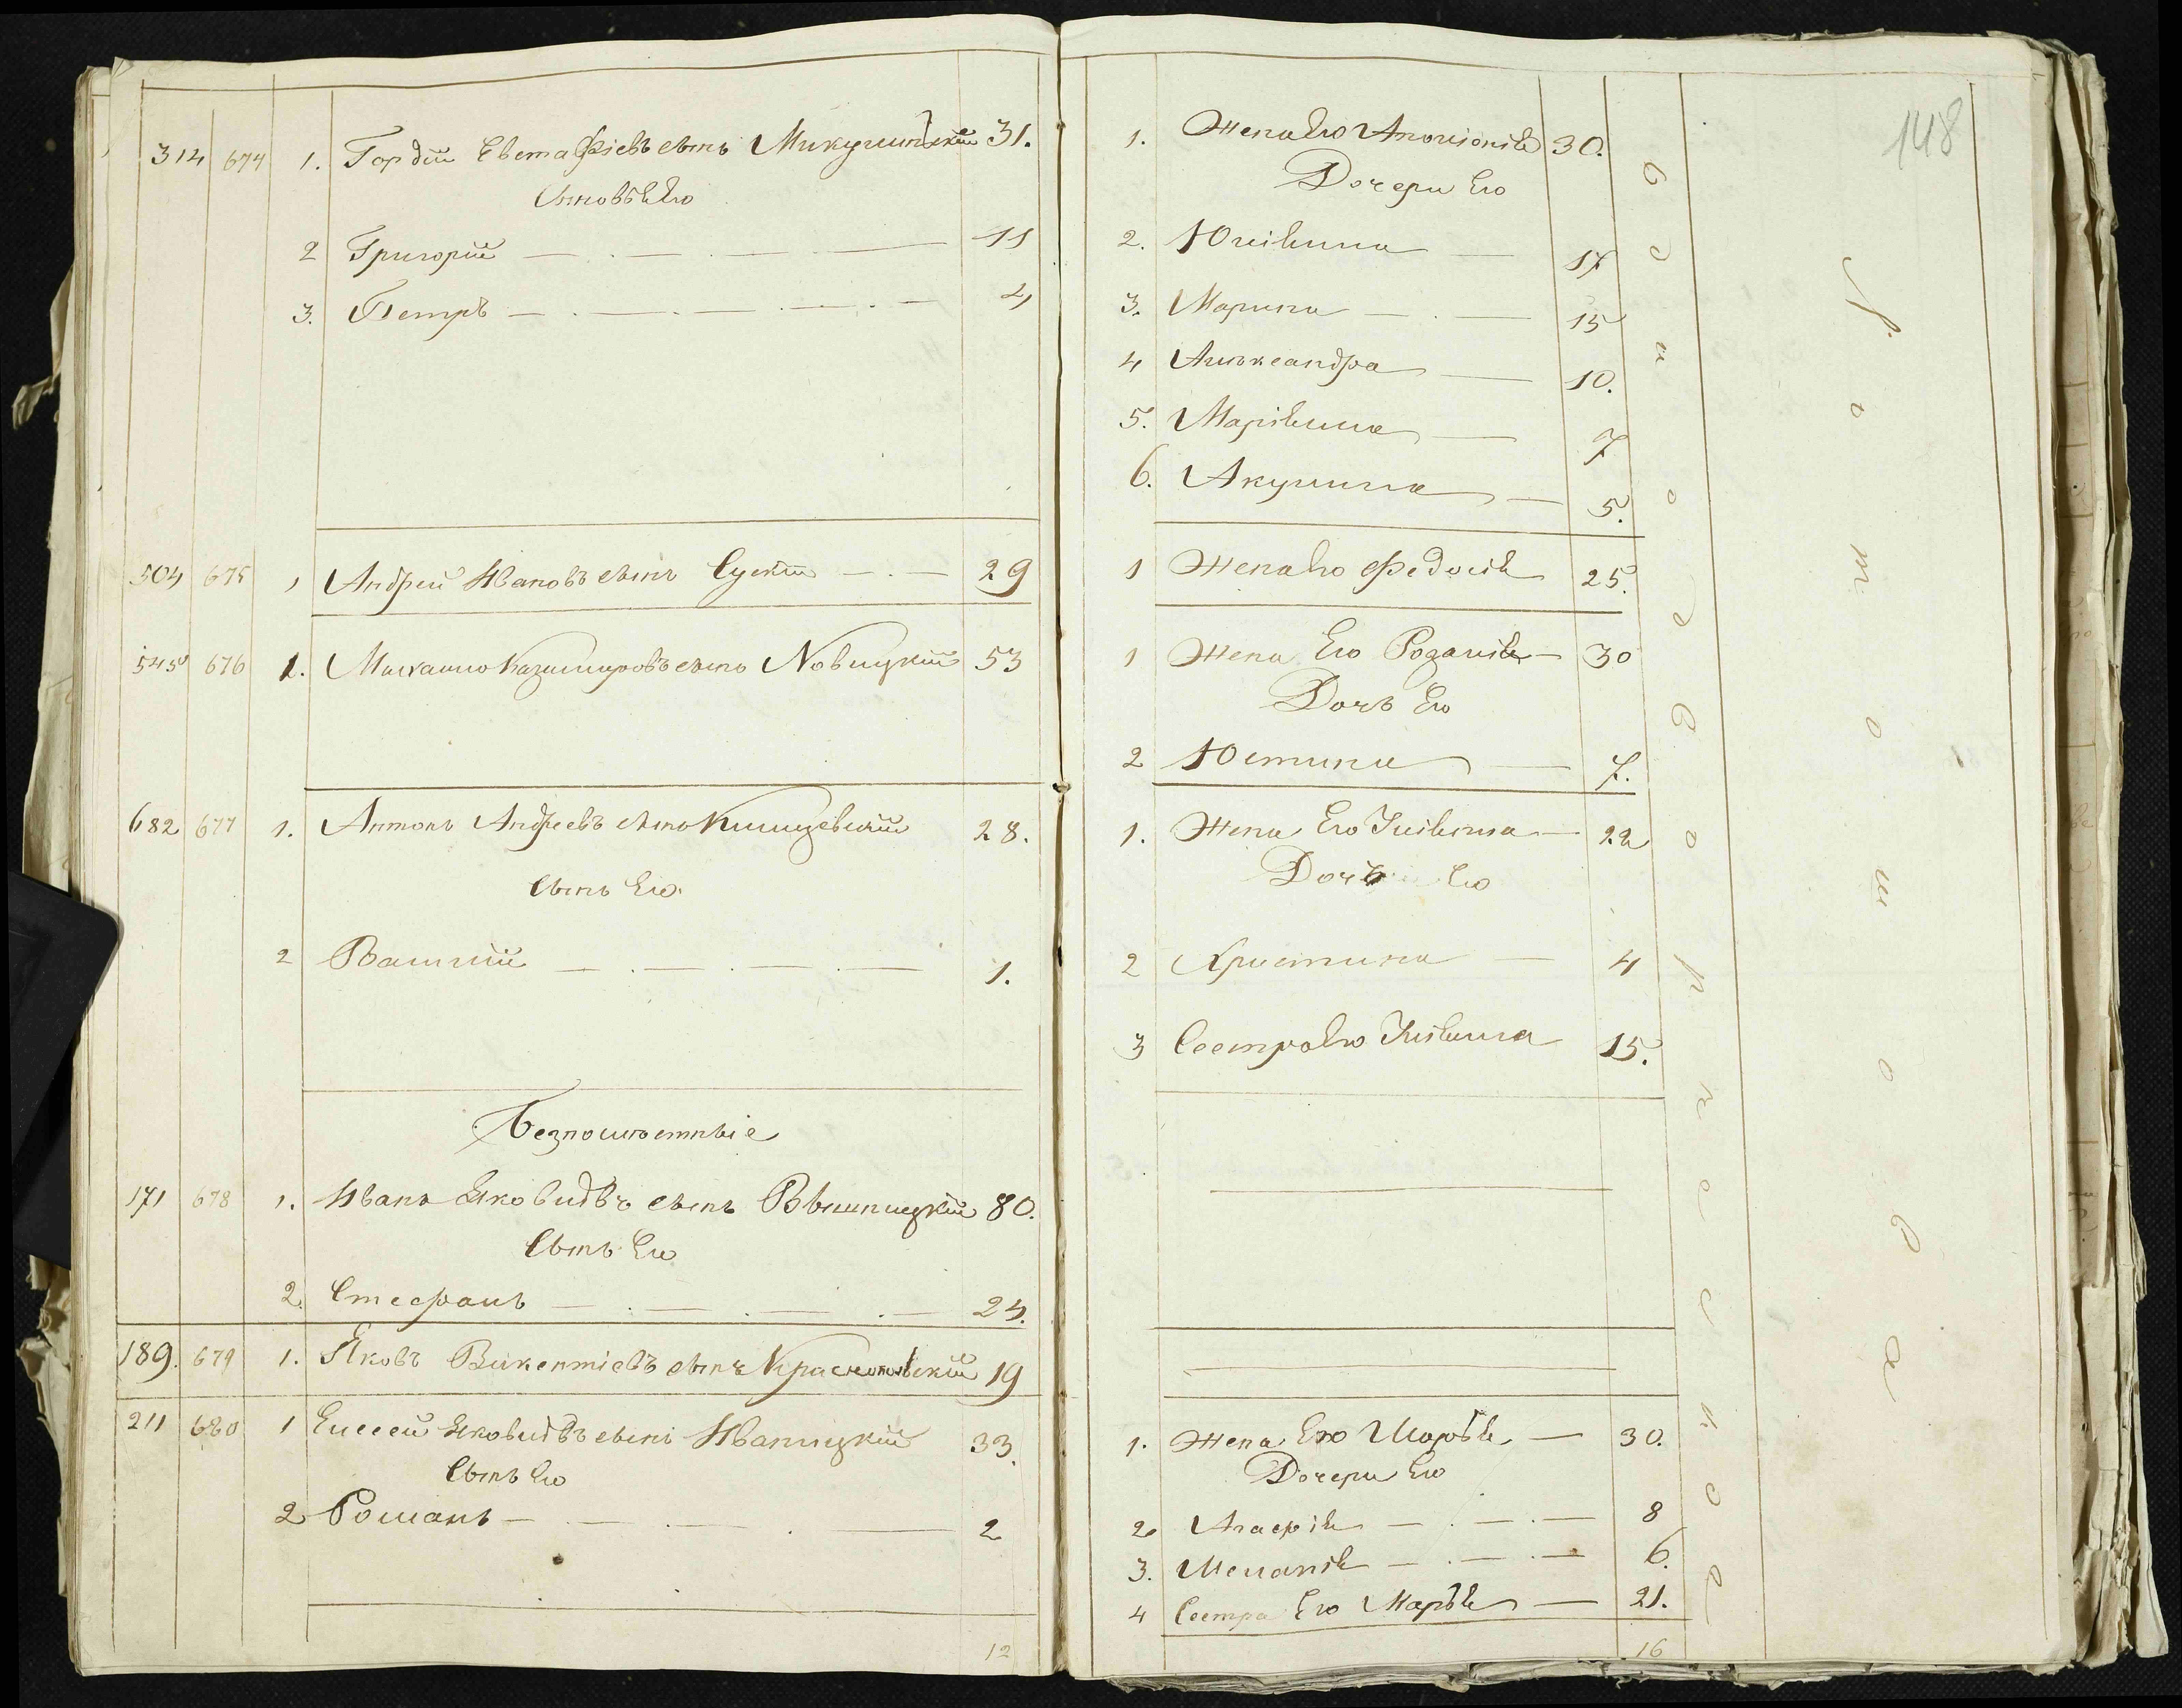 314 674 1. Гордій Евстафіевъ сынъ Микулинскій 31.
Сыновья Его
2 Григорій 11
3. Петръ 4
504 675 1 Андрей Ивановъ сынъ Сускій 29
545 676 1. Михайло Казимировъ сынъ Новицкій 53
682 677 1. Антонъ Андреевъ сынъ 28.
Сынъ Его
2 Василій 1.
Безпоместные
171 678 1. Иванъ Яковлевъ сынъ Вышницкій 80.
Сынъ Его
2. Стефанъ 24.
189. 679 1. Яковъ Викентіевъ сынъ Краснопольскій 19
211 680 1 Елесей Яковлевъ сынъ Иваницкій 33.
Сынъ Его
2 Романъ 2
12
148
1. Жена Его Аполонія 30.
Дочери Его
2. Юліянна 17
3. Марина 15
4 Александра 10.
5. Маріянна 7
6. Акулина 5.
1 Жена Его Федосія 25.
1 Жена Его Розалія 30
Дочь Его
2 Юстина 7.
1. Жена Его Юліянна 22
Дочь Его
2 Христина 4
3 Сестра Его Юліянна 15.
1. Жена Его Марья 30.
Дочери Его
2 Агафія 8
3. Меланія 6.
4 Сестра Его Марья 21.
16